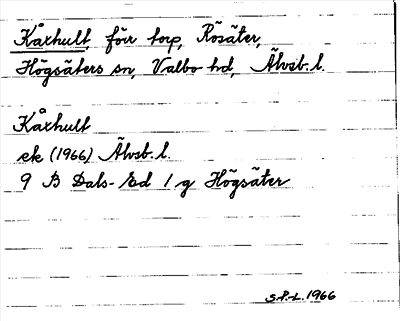 Kåxhult, förr torp, Rösäter,
Högsäters sn, Valbo hd, Älvsb. l.
Kåxhult
ek (1966) Älvsb. l.
9 B Dals-Ed 1 g Högsäter
S.P.L. 1966